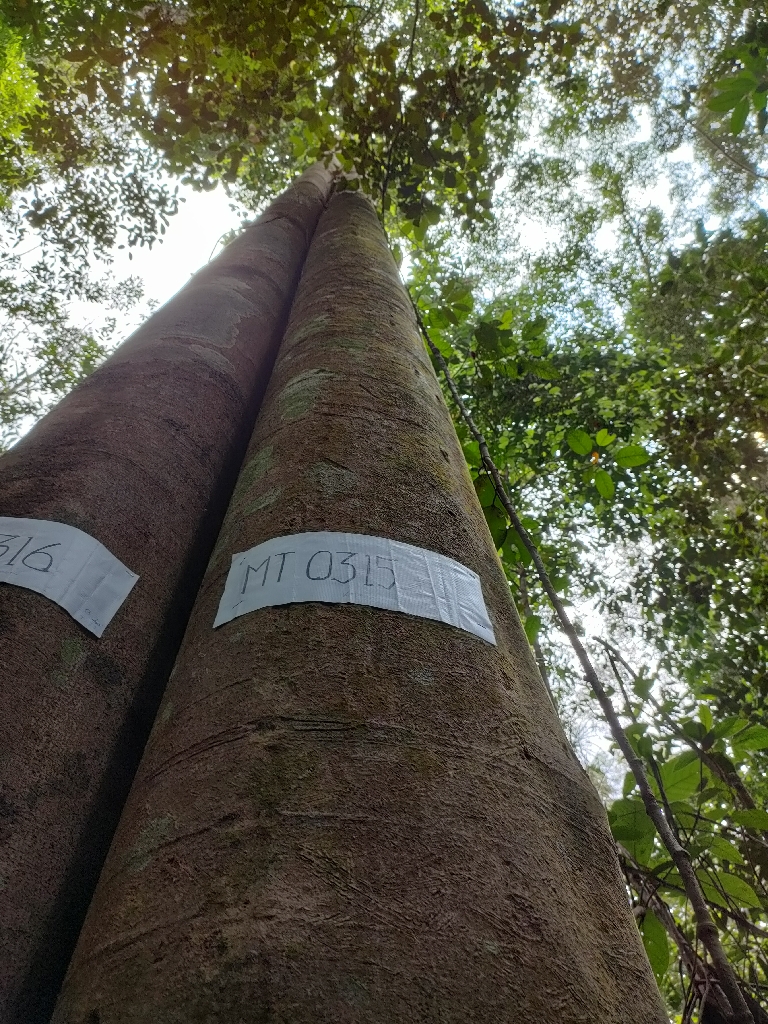 316
MT 0315